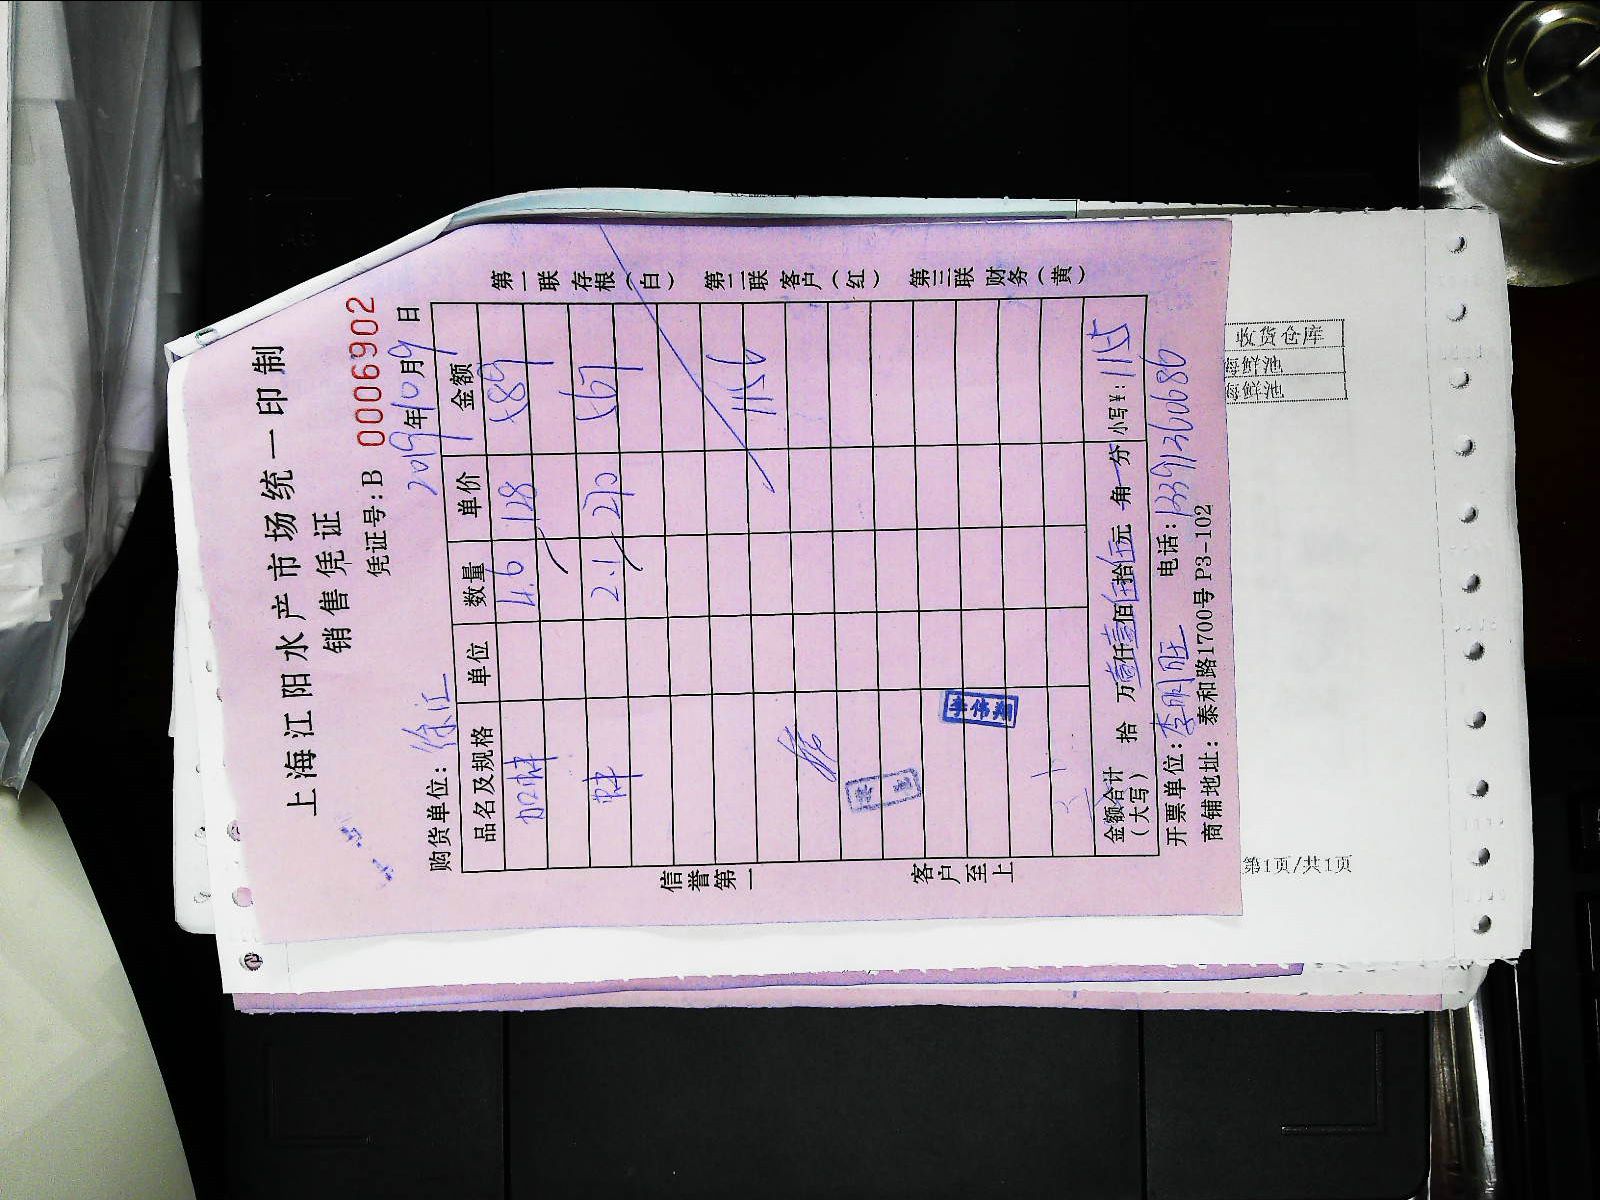 上海江阳水产市场统一印制
销售凭证
凭证号:B 0006902
购货单位: 徐汇 2019年10月9日
品名及规格 单位 数量 单价 金额
4.6 128 589
2.1 270 567
1156
李伟翔
金额合计(大写) 拾 万壹仟壹佰伍拾伍元 角 分 小写¥: 1155
开票单位: 李明旺 电话:
商铺地址: 泰和路1700号P3-102
第一联 存根(白) 第二联 客户(红) 第三联 财务(黄)
信誉第一 客户至上
收货仓库
海鲜池
海鲜池
第1页/共1页